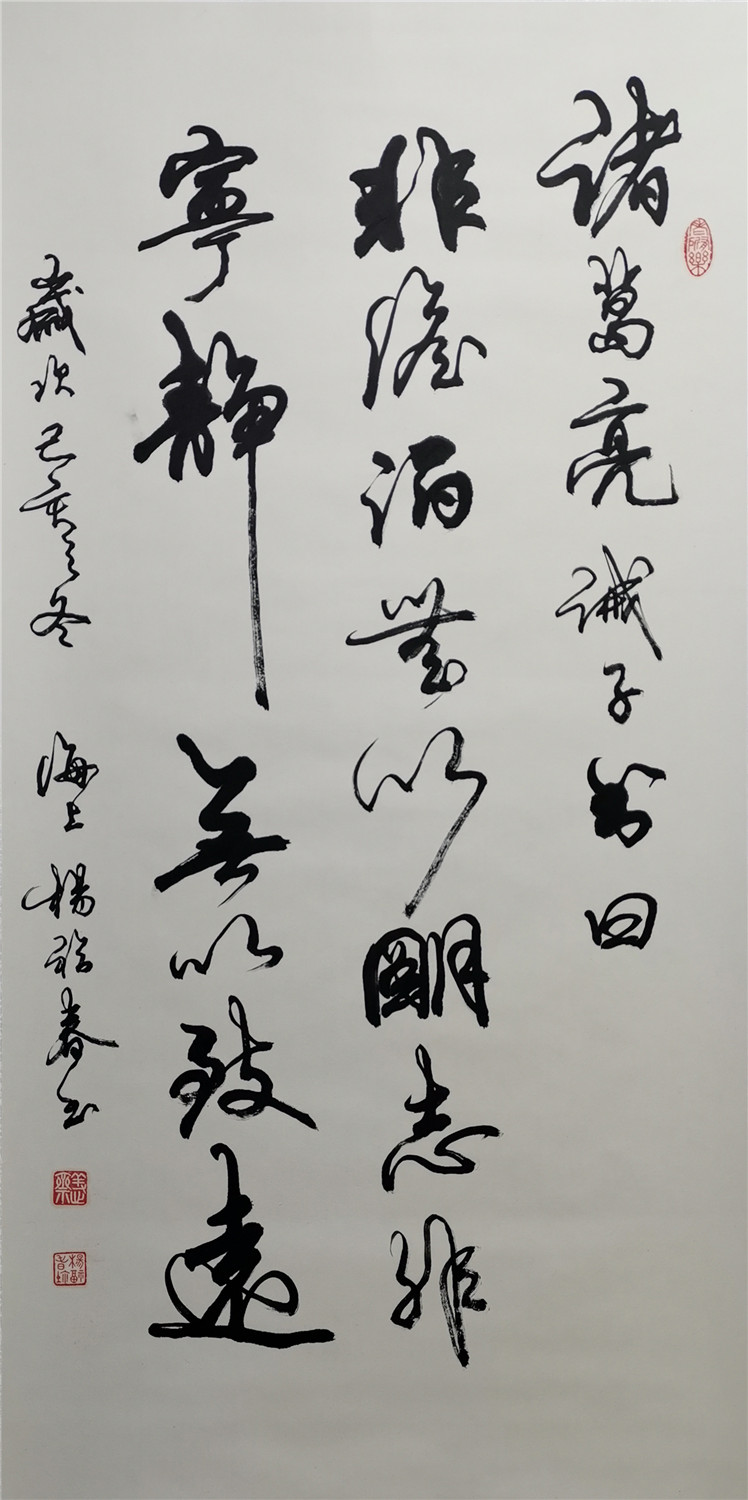 諸葛亮誡子書曰
非澹泊無以明志非
寧靜無以致遠
歲次己亥之冬 海上楊 春書